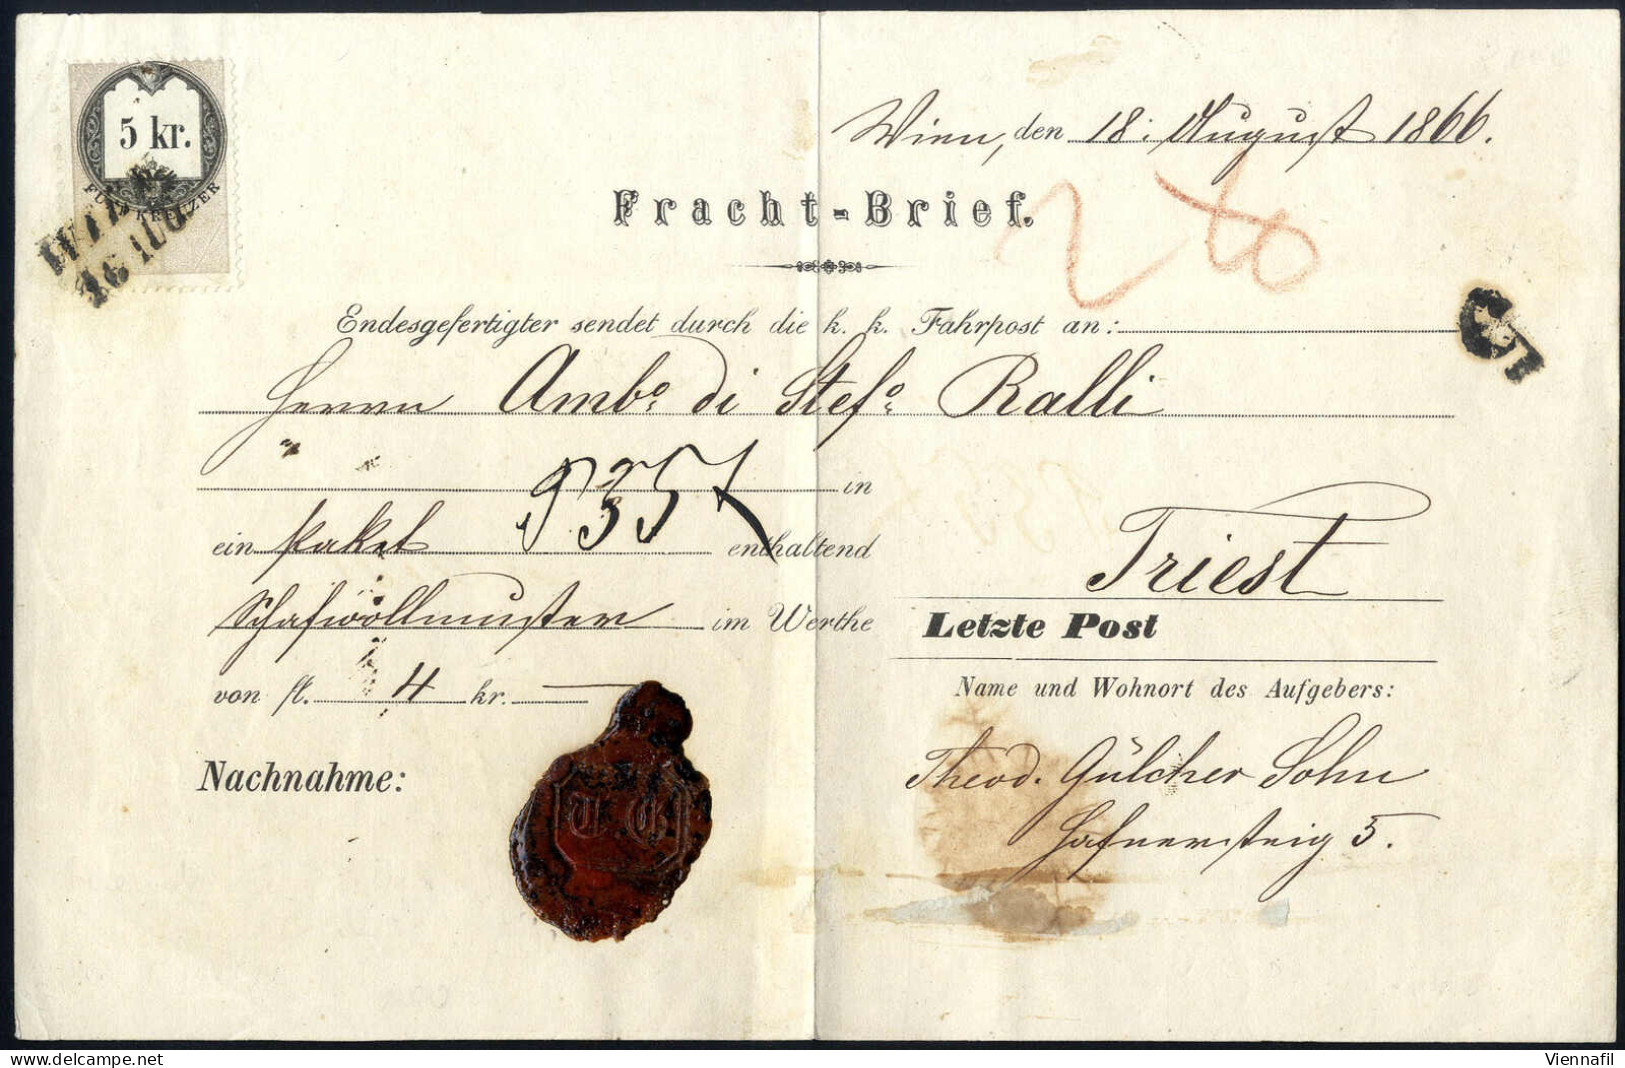 5 kr.
FÜNF KREUZER
WIEN
Wien, den 18. August 1866.
Fracht-Brief.
Endesgefertigter sendet durch die k. k. Fahrpost an:
Herrn Ambº di Stefº Ralli
in
ein Paket enthaltend
Schafwollmuster im Werthe
von fl. 4 kr. —
Triest
Letzte Post
Name und Wohnort des Aufgebers:
Theod. Gülcher Sohn
Hafnersteig 5.
Nachnahme:
Viennafil